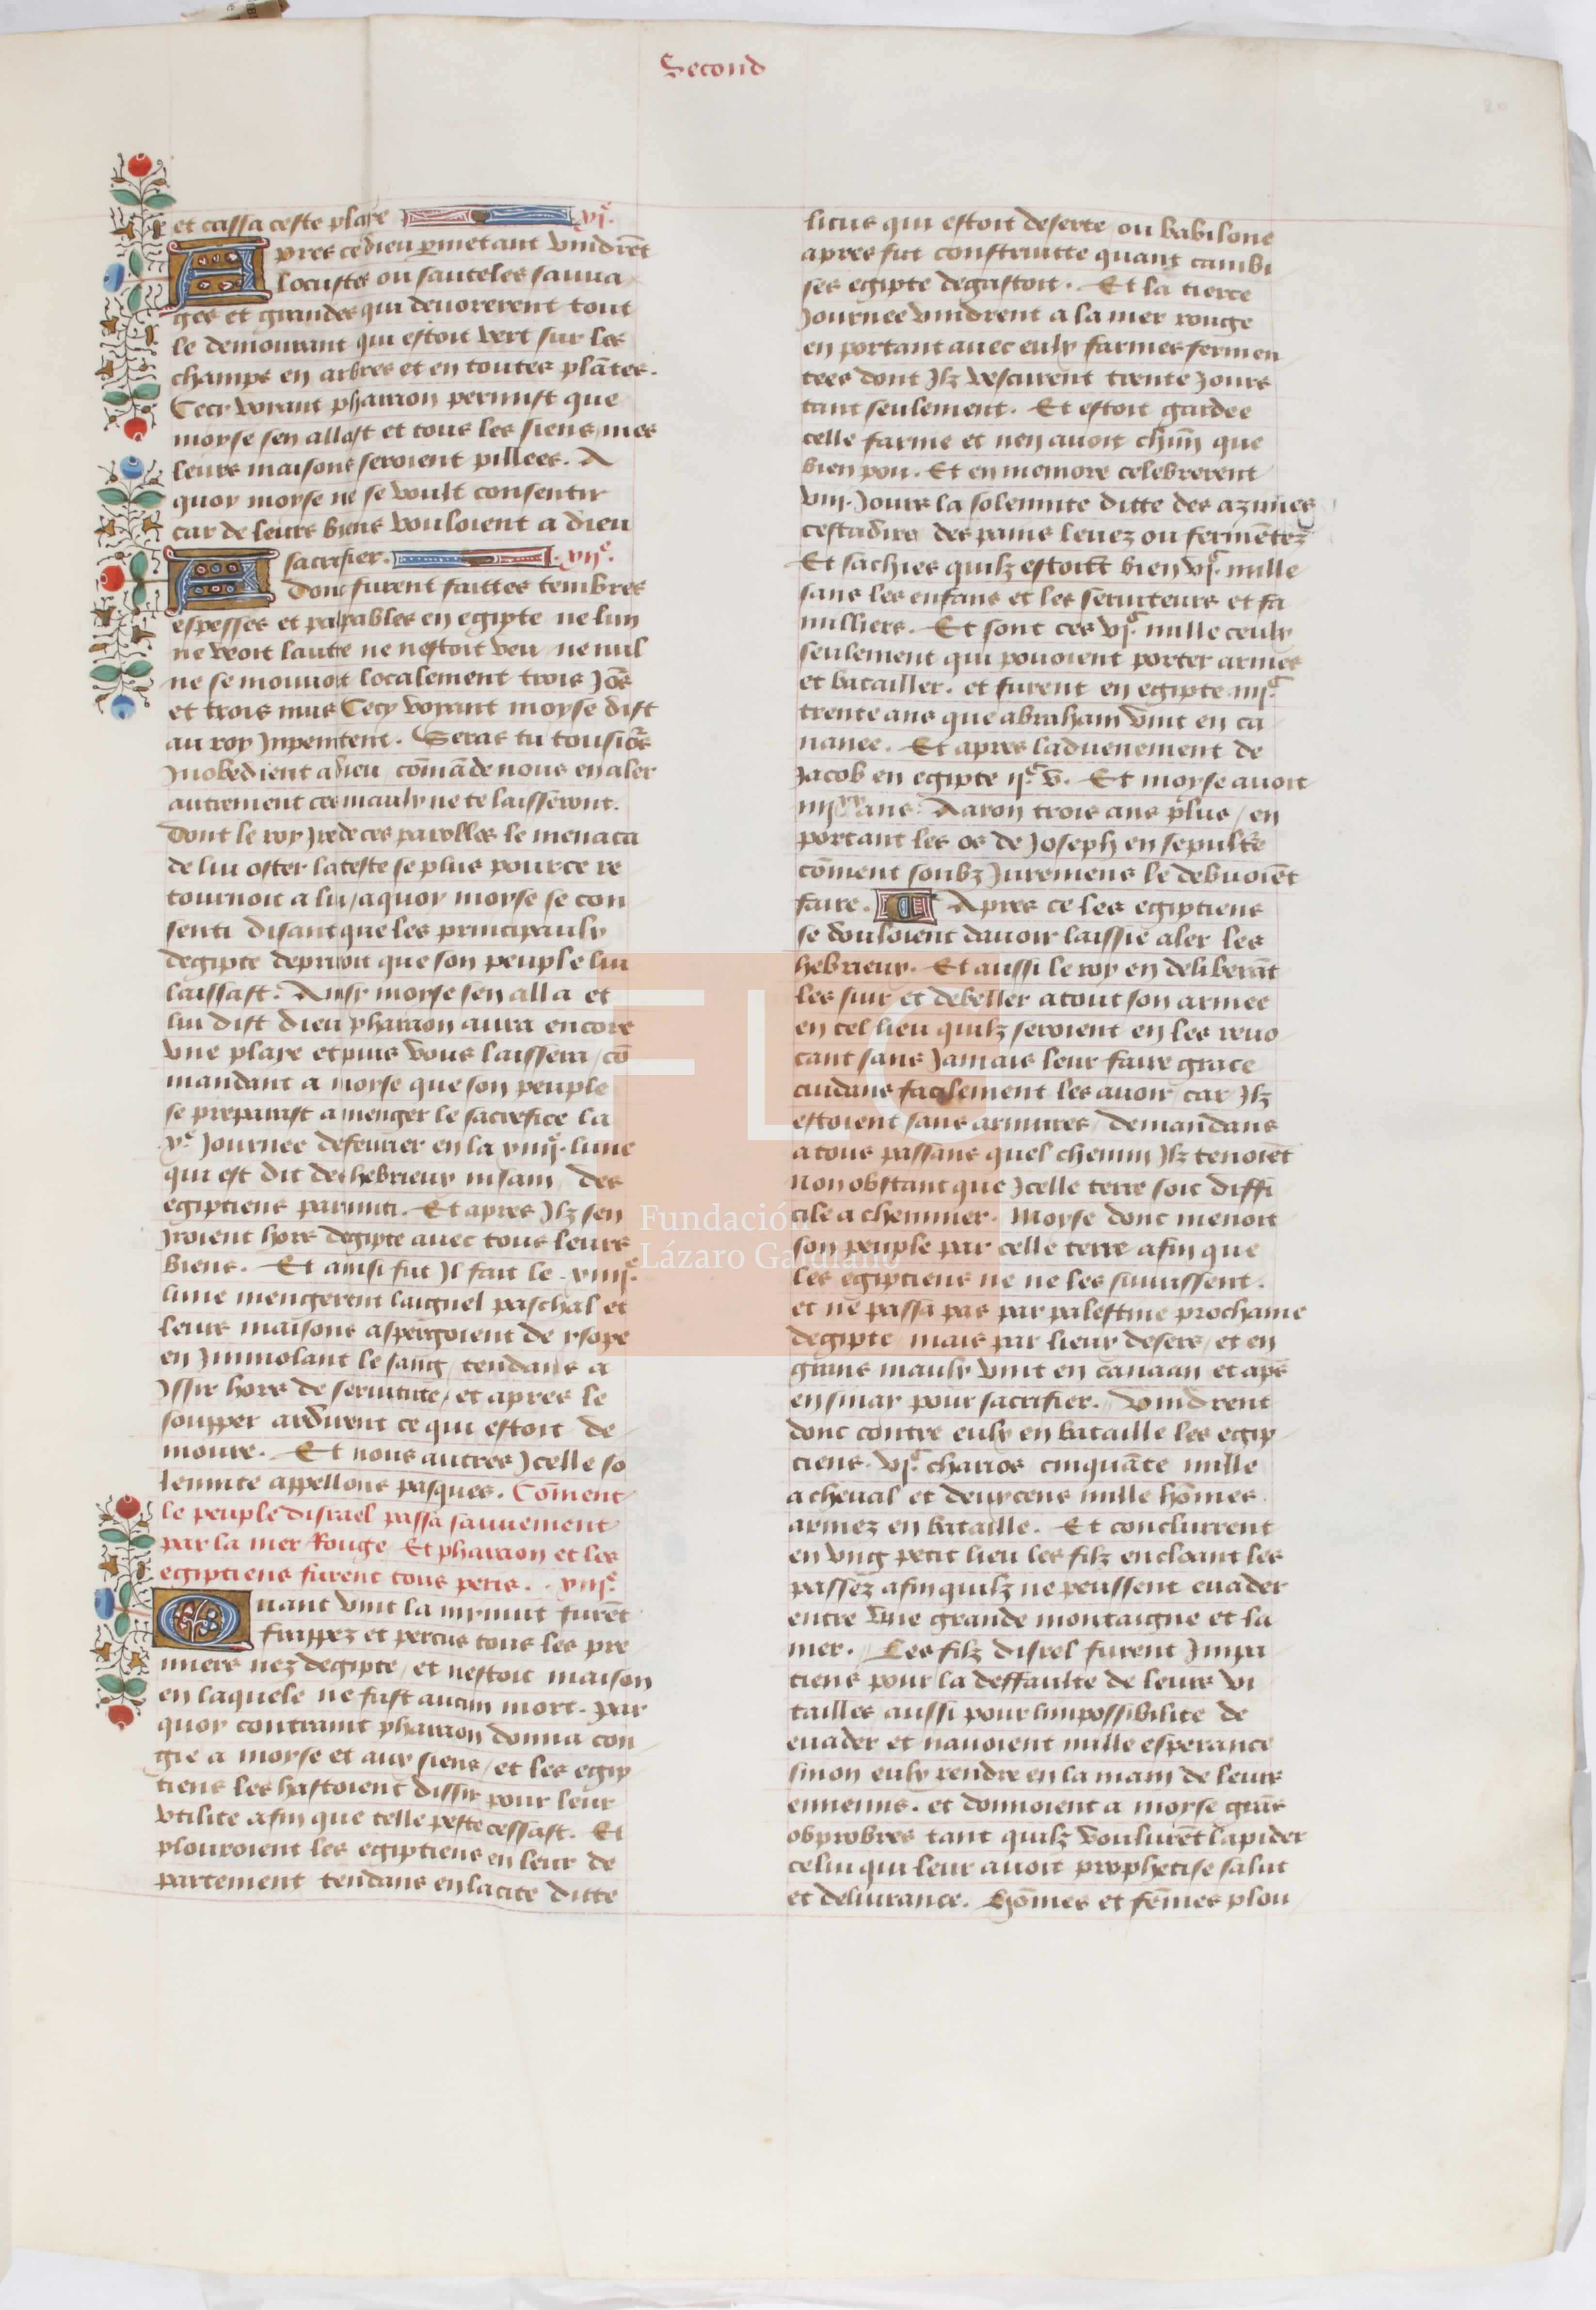 Second
20
et cassa ceste playe vjͤ.
Apres ce dieu ꝑmetant vindrēt
locustes ou sauteles sauua
ges et grandes qui deuorerent tout
le demourant qui estoit vert sur les
champs en arbres et en toutes plātes.
Cecy voyant pharaon permist que
moyse sen allast et tous les siens mes
leurs maisons seroient pillees. A
quoy moyse ne se voult consentir
car de leurs biens vouloient a dieu
sacrifier. vijͤ.
Adonc furent faittes tenebres
espesses et palpables en egipte ne lun
ne veoit lautre ne nestoit veu ne nul
ne se mouuoit localement trois Jōs
et trois nuis Cecy voyant moyse dist
au roy Jnpenitent. Seras tu tousiōrs
Jnobedient a dieu cōmāde nous en aler
autrement ces maulx ne te laisseront.
Dont le roy Jre de ces parolles le menaca
de lui oster la teste se plus pour ce re
tournoit a lui / a quoy moyse se con
senti disant que les principaulx
degipte deprioit que son peuple lui
laissast. Ainsy moyse sen alla et
lui dist dieu pharaon aura encore
vne playe et puis vous laissera / cō
mandant a moyse que son peuple
se preparast a menger le sacrefice la
xͤ Journee de feurier en la xiiijͤ. lune
qui est dit des hebrieux nisam des
egiptiens parmuti. Et apres Jlz sen
Jroient hors degipte auec tous leurs
biens. Et ainsi fut Jl fait le xiiijͤ.
lune mengerent laignel paschal et
leurs maisons aspergoient de ysope
en Jmmolant le sang / tendans a
Jssir hors de seruitute / et apres le
soupper ardirent ce qui estoit de
moure. Et nous autres Jcelle so
lennite appellons pasques. Cōment
le peuple disrael passa sauuement
par la mer Rouge Et pharaon et les
egiptiens furent tous peris. viijͤ.
Quant vint la mynuit furēt
frappez et percus tous les pre
miers nez degipte / et nestoit maison
en laquele ne fust aucun mort. par
quoy contraint pharaon donna con
gie a moyse et aux siens / et les egip
tiens les hastoient dissir pour leur
vtilite afin que celle peste cessast. Et
plouroient les egiptiens en leur de
partement tendans en la cite ditte
licus qui estoit deserte ou babilone
apres fut construitte quant cambi
ses egipte degastoit. Et la tierce
Journee vindrent a la mer rouge
en portant auec eulx farines fermen
tees dont Jlz vescurent trente Jours
tant seulement. Et estoit gardee
celle farine et nen auoit chūn que
bien pou. Et en memore celebrerent
viij. Jours la solennite ditte des azimes
cestadire des pains leuez ou fermētez
Et sachies quilz estoiēt bien vjͨ. mille
sans les enfans et les seruiteurs et fa
milliers. Et sont ces vjͨ. mille ceulx
seulement qui pouoient porter armes
et batailler. et furent en egipte iiijͨ
trente ans que abraham vint en ca
nanee. Et apres laduenement de
Jacob en egipte ijͨ. v. Et moyse auoit
iiijxx ans. Aaron trois ans plus / en
portant les os de Joseph en sepultre
cōment soubz Juremens le debuoiēt
faire. Apres ce les egiptiens
se douloient dauoir laissie aler les
hebrieux. Et aussi le roy en deliberāt
les suir et debeller atout son armee
en tel lieu quilz seroient en les reuo
cant sans Jamais leur faire grace
cuidans facilement les auoir car Jlz
estoient sans armures / demandans
a tous passans quel chemin Jlz tenoiēt
Non obstant que Jcelle terre soit diffi
cile a cheminer. Moyse donc menoit
son peuple par celle terre afin que
les egiptiens ne ne les suiuissent.
et ne passa pas par palestine prochaine
degipte / mais par lieux desers / et en
grans maulx vint en canaan et apres
en sinay pour sacrifier. Vindrent
donc contre eulx en bataille les egip
tiens. vjͨ. charios cinquāte mille
a cheual et deux cens mille hōmes
armez en bataille. Et conclurrent
en vng petit lieu les filz encloant les
passez afin quilz ne peussent euader
entre vne grande montaigne et la
mer. Les filz disrel furent Jmpa
ciens pour la deffaulte de leurs vi
tailles aussi pour limpossibilite de
euader et nauoient nulle esperance
sinon eulx rendre en la main de leurs
ennemis. et donnoient a moyse grās
obprobres tant quilz voulurēt lapider
celui qui leur auoit prophetise salut
et deliurance. Hōmes et fēmes plou
Fundación
Lázaro Galdiano
FLG